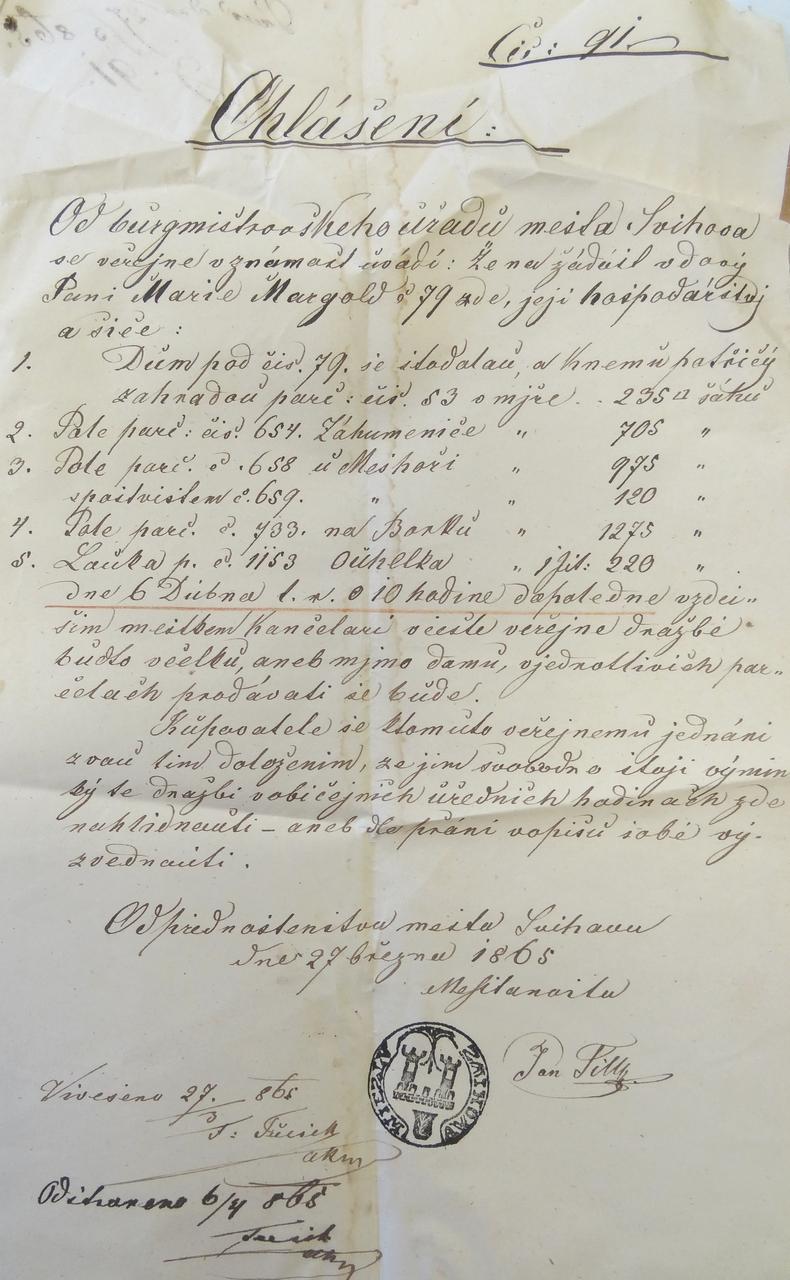 Čis: 91.
Ohlášení:
Od burgmistrovskeho úřadu mesta Svihova
se veřejne v známost uvádí: Že na žádost vdovy
Pani Marie Margold č 79 zde, její hospodářství
a siče:
1. Dům pod čis. 79. se stodolau, a knemu patřičý
zahradou parc: čis. 53 o mjře . . 235 □ sáhu
2. Pole parc: čis. 654. Záhumeniče " 705 "
3. Pole parc. č. 658 u Meskoři " 975 "
spastvistem č. 659. " " 120 "
4. Pole parc. č. 733. na Borku " 1275 "
5. Lauka p. č. 1153 Ouhelka " 1 Jit: 220 "
dne 6 Dubna l. r. o 10 hodine dopoledne vzdei„
šim mestkem kančelari vceste veřejne dražbé
buďto včelku, aneb mjmo domu, vjednotlivich par„
čelach prodávati se bude.
Kupovatele se ktomuto veřejnemu jednáni
zvau tim doloženim, ze jim svobodno stoji výmin
ký te dražbi vobičejnich úřednich hodinach zde
nahlidnauti – aneb dle práni vopisu sobé vý-
zvednauti.
Od přednostenstva mesta Svihova
dne 27 března 1865
Městanosta
Jan Tilly
Viveseno 27./3 865
Odstraneno 6/4 865